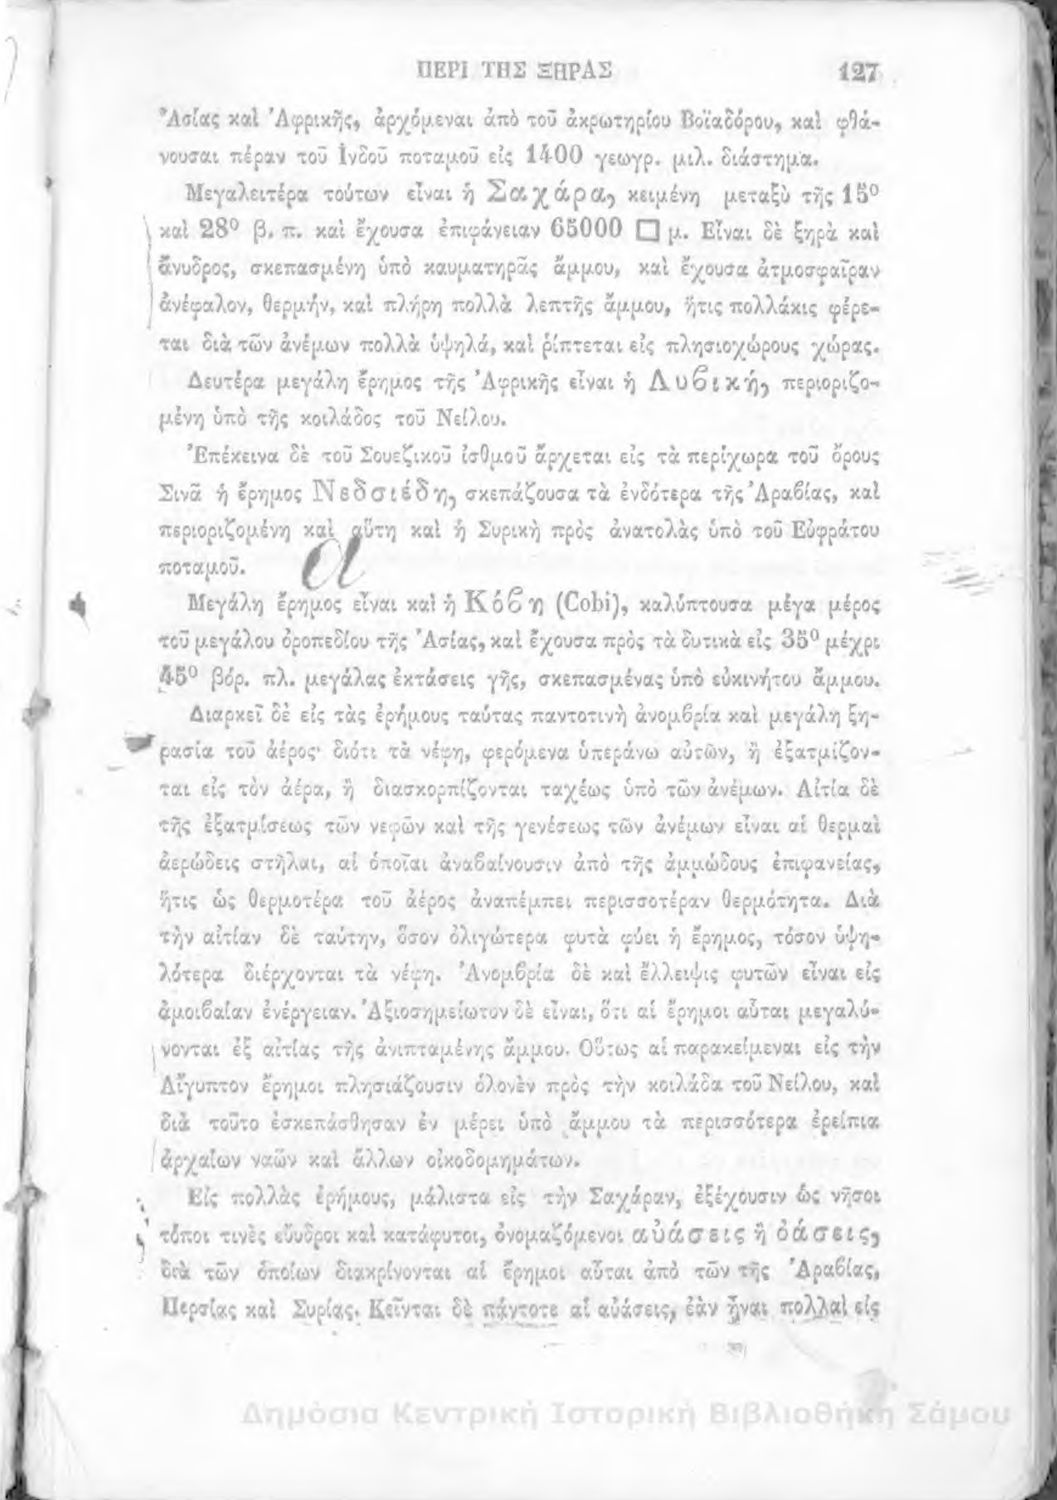 ΠΕΡΙ ΤΗΣ ΞΗΡΑΣ 127
Ἀσίας καὶ Ἀφρικῆς, ἀρχόμεναι ἀπὸ τοῦ ἀκρωτηρίου Βοϊαδόρου, καὶ φθά-
νουσαι πέραν τοῦ Ἰνδοῦ ποταμοῦ εἰς 1400 γεωγρ. μιλ. διάστημα.
Μεγαλειτέρα τούτων εἶναι ἡ Σαχάρα, κειμένη μεταξὺ τῆς 15°
καὶ 28° β. π. καὶ ἔχουσα ἐπιφάνειαν 65000 □ μ. Εἶναι δὲ ξηρὰ καὶ
ἄνυδρος, σκεπασμένη ὑπὸ καυματηρᾶς ἄμμου, καὶ ἔχουσα ἀτμοσφαῖραν
ἀνέφαλον, θερμὴν, καὶ πλήρη πολλὰ λεπτῆς ἄμμου, ἥτις πολλάκις φέρε-
ται διὰ τῶν ἀνέμων πολλὰ ὑψηλά, καὶ ῥίπτεται εἰς πλησιοχώρους χώρας.
Δευτέρα μεγάλη ἔρημος τῆς Ἀφρικῆς εἶναι ἡ Λυβική, περιοριζο-
μένη ὑπὸ τῆς κοιλάδος τοῦ Νείλου.
Ἐπέκεινα δὲ τοῦ Σουεζικοῦ ἰσθμοῦ ἄρχεται εἰς τὰ περίχωρα τοῦ ὄρους
Σινᾶ ἡ ἔρημος Νεδσιέδη, σκεπάζουσα τὰ ἐνδότερα τῆς Ἀραβίας, καὶ
περιοριζομένη καὶ αὕτη καὶ ἡ Συρικὴ πρὸς ἀνατολὰς ὑπὸ τοῦ Εὐφράτου
ποταμοῦ.
Μεγάλη ἔρημος εἶναι καὶ ἡ Κόβη (Cobi), καλύπτουσα μέγα μέρος
τοῦ μεγάλου ὀροπεδίου τῆς Ἀσίας, καὶ ἔχουσα πρὸς τὰ δυτικὰ εἰς 35° μέχρι
45° βόρ. πλ. μεγάλας ἐκτάσεις γῆς, σκεπασμένας ὑπὸ εὐκινήτου ἄμμου.
Διαρκεῖ δὲ εἰς τὰς ἐρήμους ταύτας παντοτινὴ ἀνομβρία καὶ μεγάλη ξη-
ρασία τοῦ ἀέρος· διότι τὰ νέφη, φερόμενα ὑπεράνω αὐτῶν, ἢ ἐξατμίζον-
ται εἰς τὸν ἀέρα, ἢ διασκορπίζονται ταχέως ὑπὸ τῶν ἀνέμων. Αἰτία δὲ
τῆς ἐξατμίσεως τῶν νεφῶν καὶ τῆς γενέσεως τῶν ἀνέμων εἶναι αἱ θερμαὶ
ἀερώδεις στῆλαι, αἱ ὁποῖαι ἀναβαίνουσιν ἀπὸ τῆς ἀμμώδους ἐπιφανείας,
ἥτις ὡς θερμοτέρα τοῦ ἀέρος ἀναπέμπει περισσοτέραν θερμότητα. Διὰ
τὴν αἰτίαν δὲ ταύτην, ὅσον ὀλιγώτερα φυτὰ φύει ἡ ἔρημος, τόσον ὑψη-
λότερα διέρχονται τὰ νέφη. Ἀνομβρία δὲ καὶ ἔλλειψις φυτῶν εἶναι εἰς
ἀμοιβαίαν ἐνέργειαν. Ἀξιοσημείωτον δὲ εἶναι, ὅτι αἱ ἔρημοι αὗται μεγαλύ-
νονται ἐξ αἰτίας τῆς ἀνιπταμένης ἄμμου. Οὕτως αἱ παρακείμεναι εἰς τὴν
Αἴγυπτον ἔρημοι πλησιάζουσιν ὁλονὲν πρὸς τὴν κοιλάδα τοῦ Νείλου, καὶ
διὰ τοῦτο ἐσκεπάσθησαν ἐν μέρει ὑπὸ ἄμμου τὰ περισσότερα ἐρείπια
ἀρχαίων ναῶν καὶ ἄλλων οἰκοδομημάτων.
Εἰς πολλὰς ἐρήμους, μάλιστα εἰς τὴν Σαχάραν, ἐξέχουσιν ὡς νῆσοι
τόποι τινὲς εὔυδροι καὶ κατάφυτοι, ὀνομαζόμενοι αὐάσεις ἢ ὀάσεις,
διὰ τῶν ὁποίων διακρίνονται αἱ ἔρημοι αὗται ἀπὸ τῶν τῆς Ἀραβίας,
Περσίας καὶ Συρίας. Κεῖνται δὲ πάντοτε αἱ αὐάσεις, ἐὰν ἦναι πολλαὶ εἰς
Δημόσια Κεντρική Ιστορική Βιβλιοθήκη Σάμου